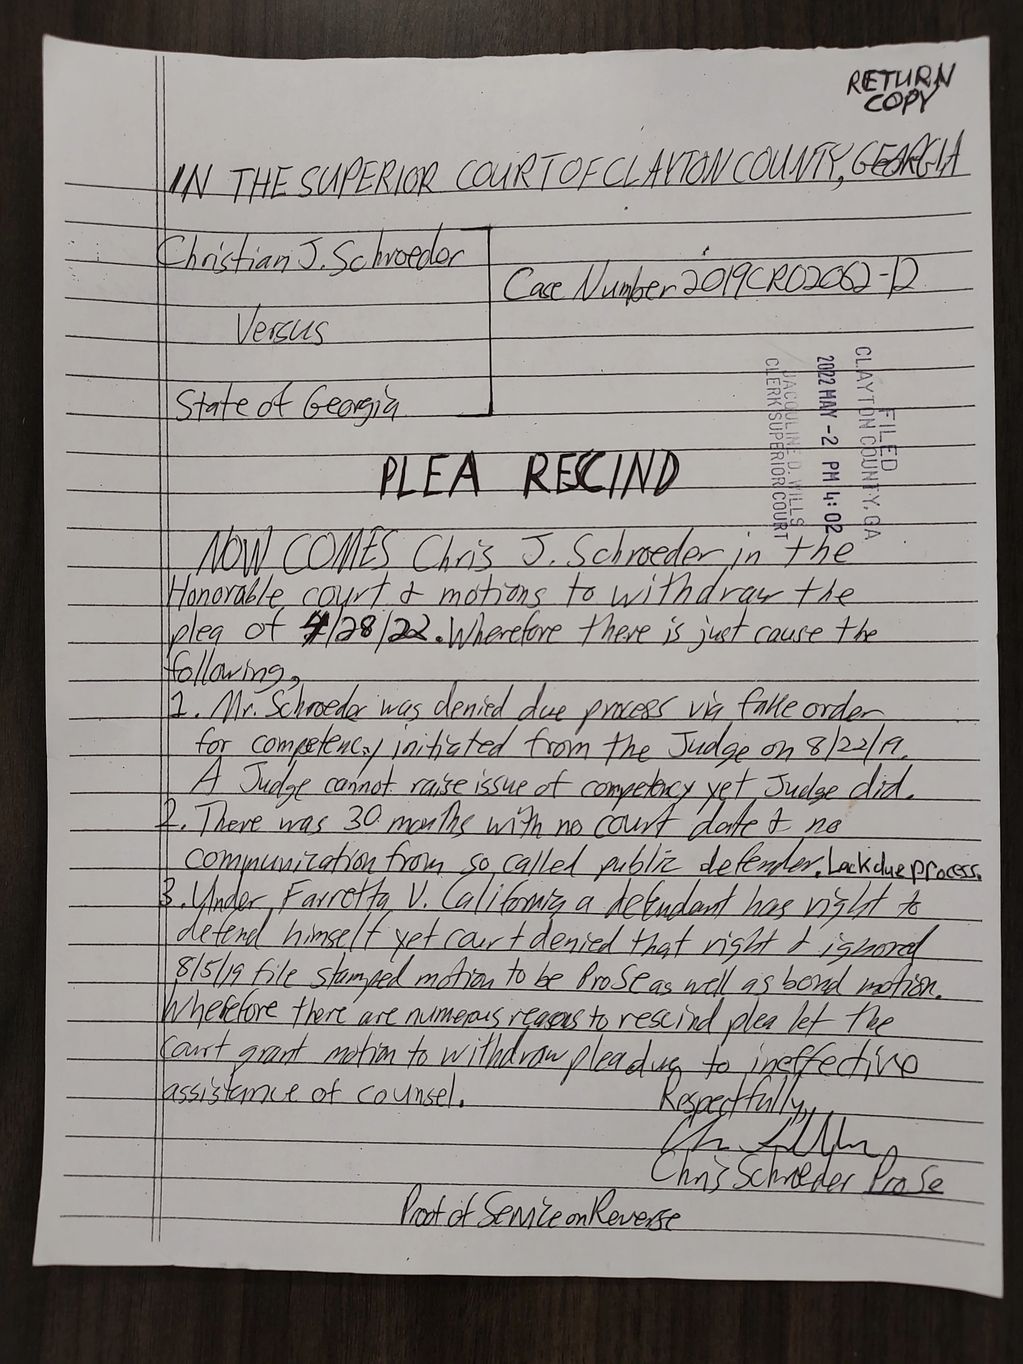 RETURN
COPY
IN THE SUPERIOR COURT OF CLAYTON COUNTY, GEORGIA
Christian J. Schroeder
Case Number 2019CR02062-12
Versus
State of Georgia
FILED
CLAYTON COUNTY, GA
2022 MAY -2 PM 4:02
JACQULINE D. WILLS
CLERK SUPERIOR COURT
PLEA RESCIND
NOW COMES Chris J. Schroeder in the
Honorable court & motions to withdraw the
plea of 4/28/22. Wherefore there is just cause the
following,
1. Mr. Schroeder was denied due process via fake order
for competency initiated from the Judge on 8/22/19.
A Judge cannot raise issue of competency yet Judge did.
2. There was 30 months with no court date & no
communication from so called public defender. Lack due process.
3. Under Farretta V. California a defendant has right to
defend himself yet court denied that right & ignored
8/5/19 file stamped motion to be ProSe as well as bond motion.
Wherefore there are numerous reasons to rescind plea let the
court grant motion to withdraw plea due to ineffective
assistance of counsel.
Respectfully,
Chris Schroeder ProSe
Proof of Service on Reverse